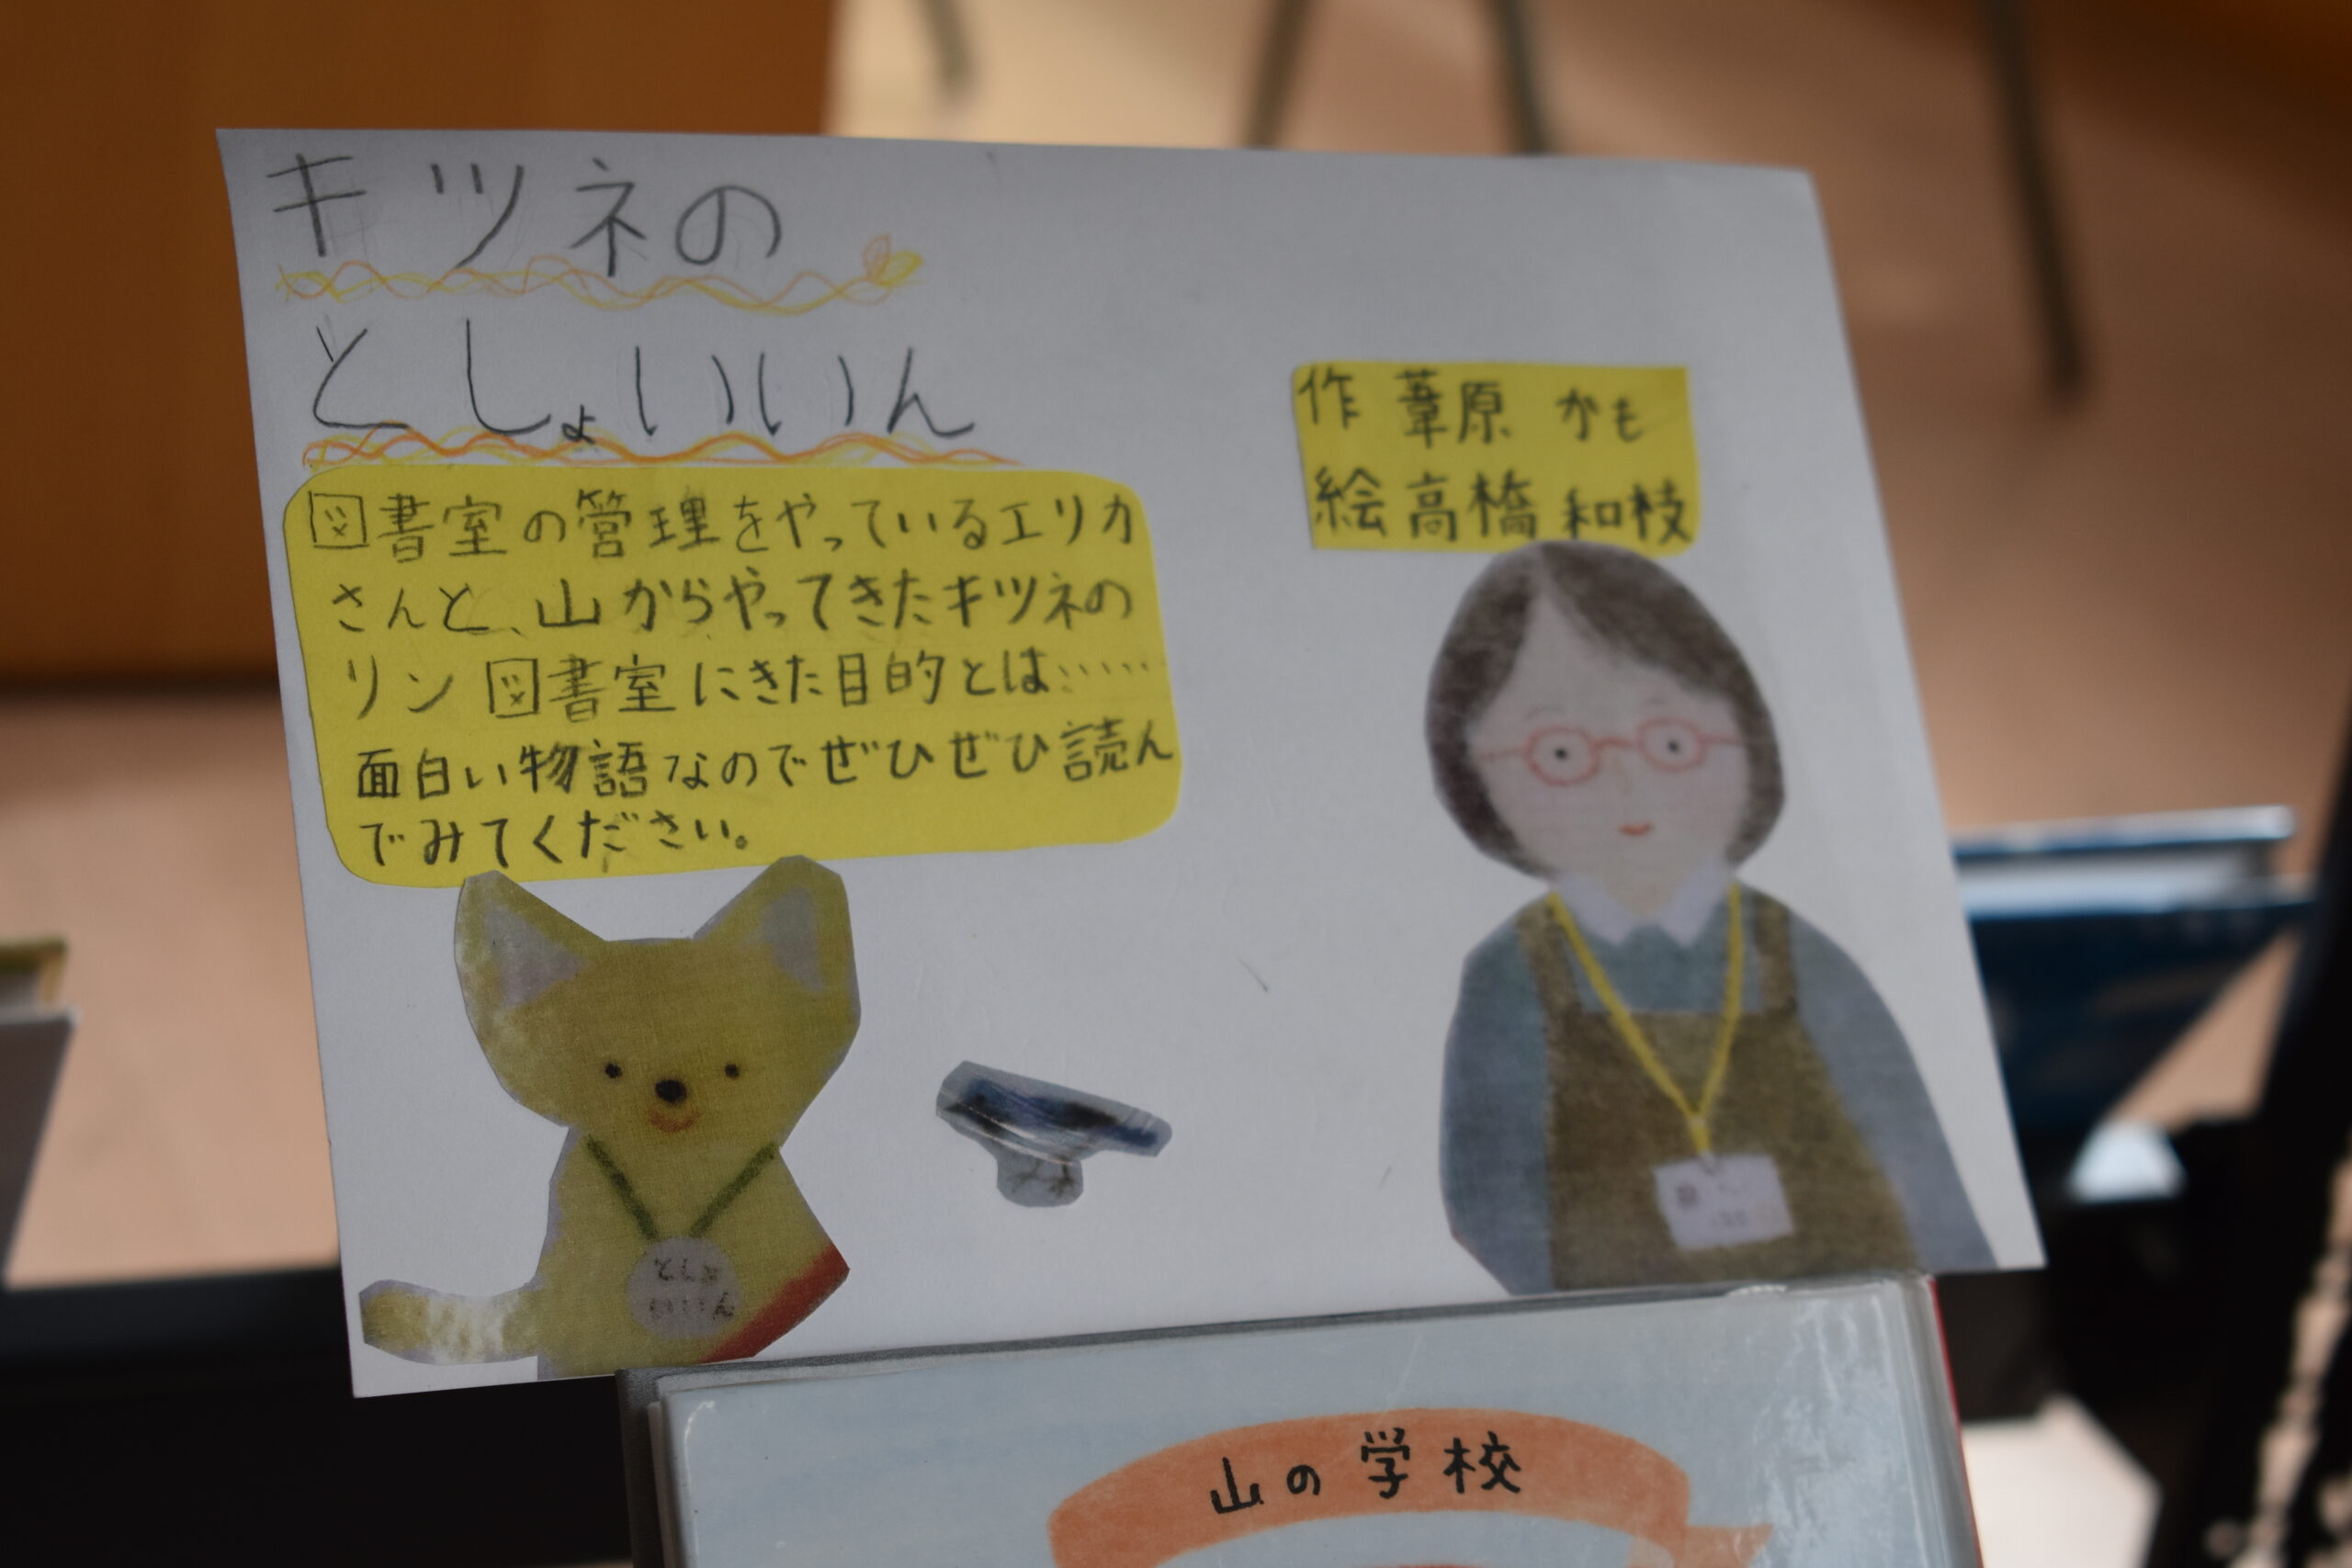 キツネの
としょいいん
作 葦原 かも
絵 高橋 和枝
図書室の管理をやっているエリカ
さんと、山からやってきたキツネの
リン 図書室にきた目的とは……
面白い物語なのでぜひぜひ読ん
でみてください。
としょ
いいん
山の学校